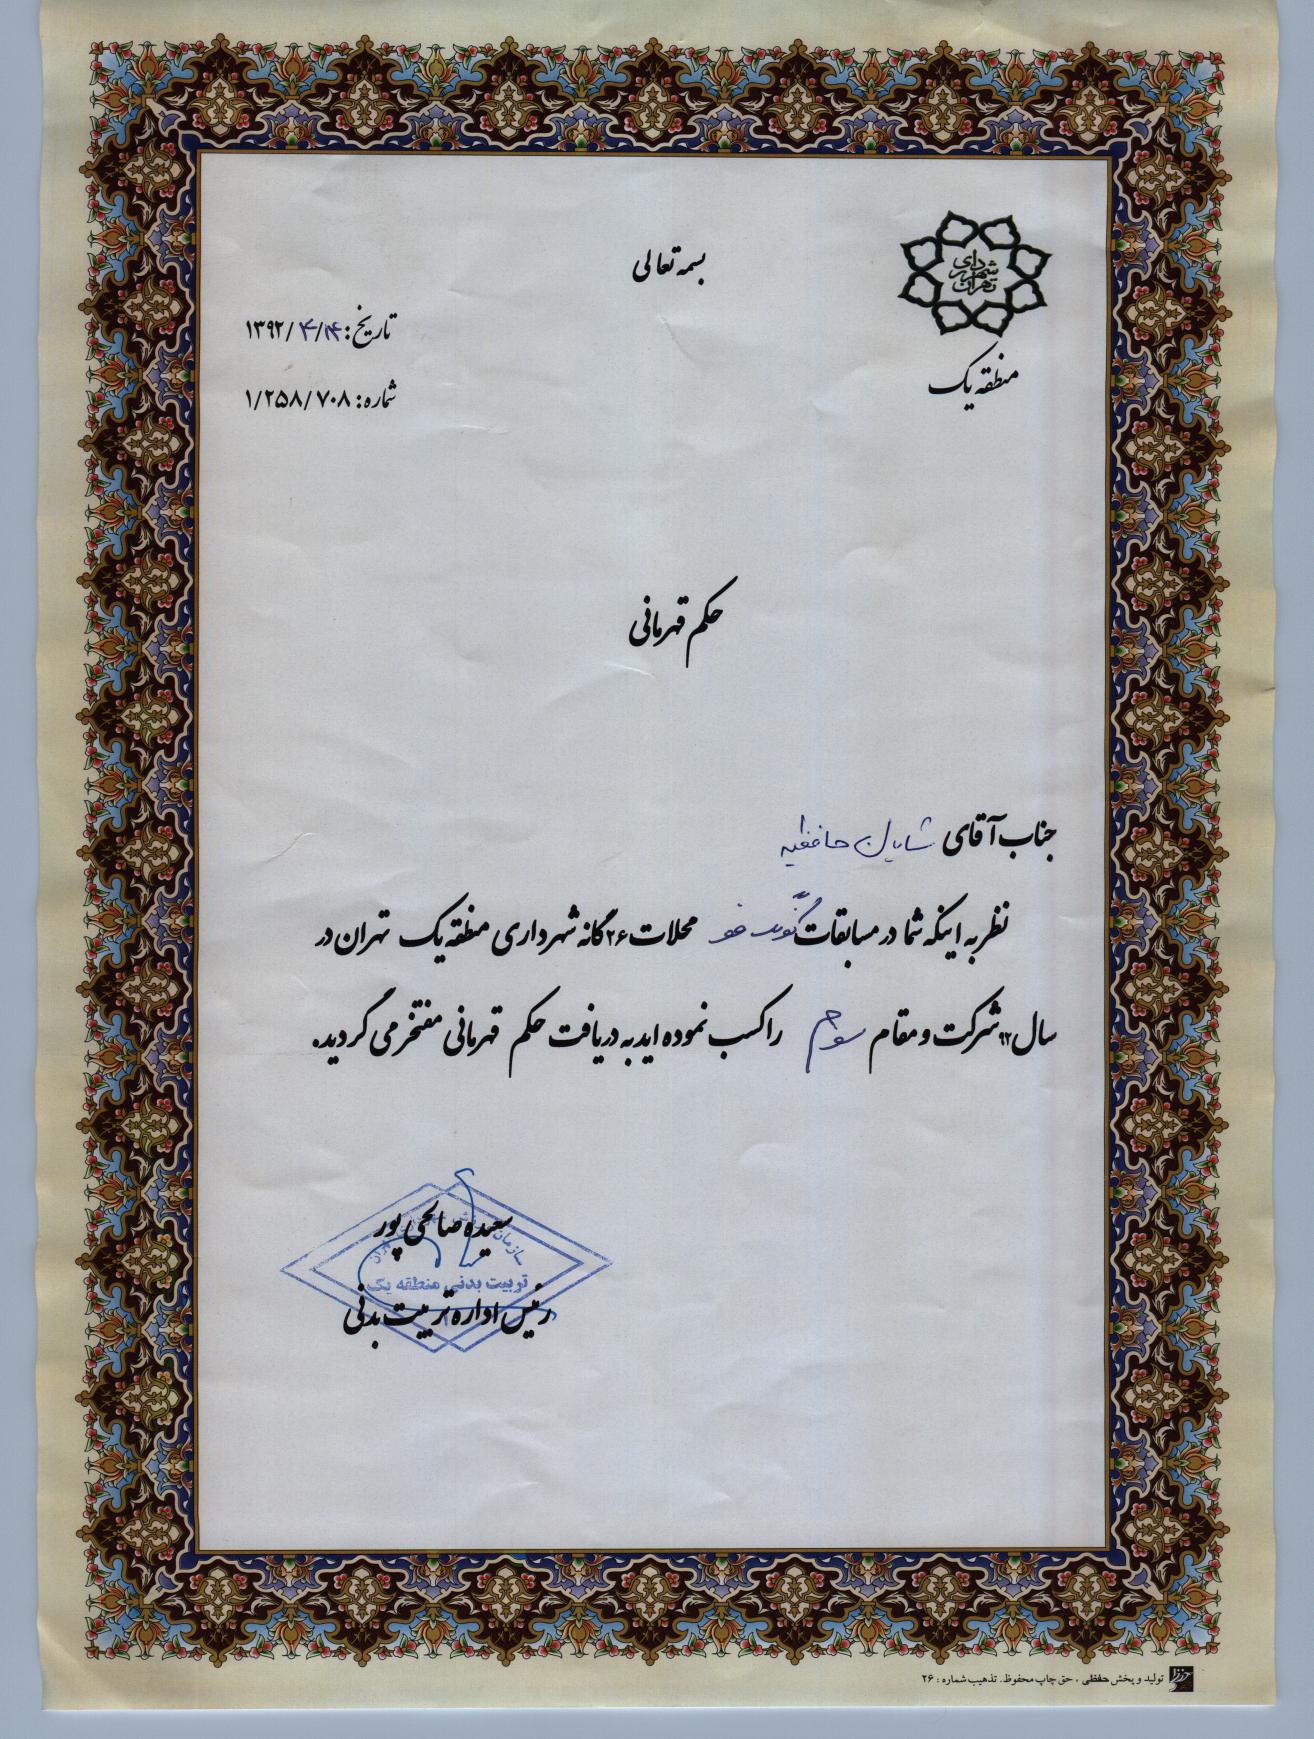 بسمه تعالی
شهرداری تهران
منطقه یک
تاریخ: ۱۳۹۲/۴/۱۴
شماره: ۱/۲۵۸/۷۰۸
حکم قهرمانی
جناب آقای شایان حافظیه
نظر به اینکه شما در مسابقات محلات ۲۶ گانه شهرداری منطقه یک تهران در
سال ۹۲ شرکت و مقام سوم را کسب نموده اید به دریافت حکم قهرمانی مفتخر می گردید.
سعیده صالحی پور
تربیت بدنی منطقه یک
رئیس اداره تربیت بدنی
تولید و پخش حفظی . حق چاپ محفوظ. تذهیب شماره : ۲۶